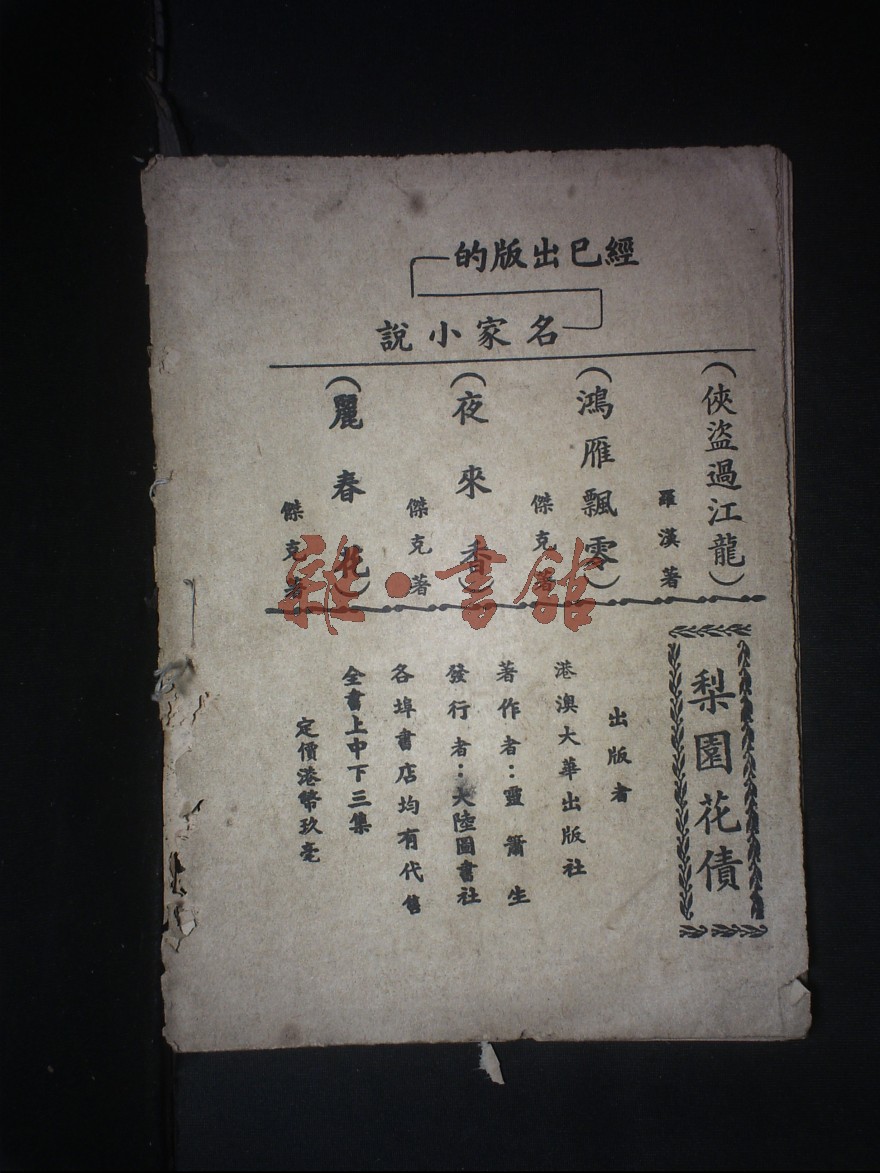 經已出版的
名家小說
(俠盜過江龍)
羅漢著
(鴻雁飄零)
傑克著
(夜來香)
傑克著
(麗春花)
傑克著
梨園花債
出版者
港澳大華出版社
著作者：靈簫生
發行者：大陸圖書社
各埠書店均有代售
全書上中下三集
定價港幣玖毫
雜·書館